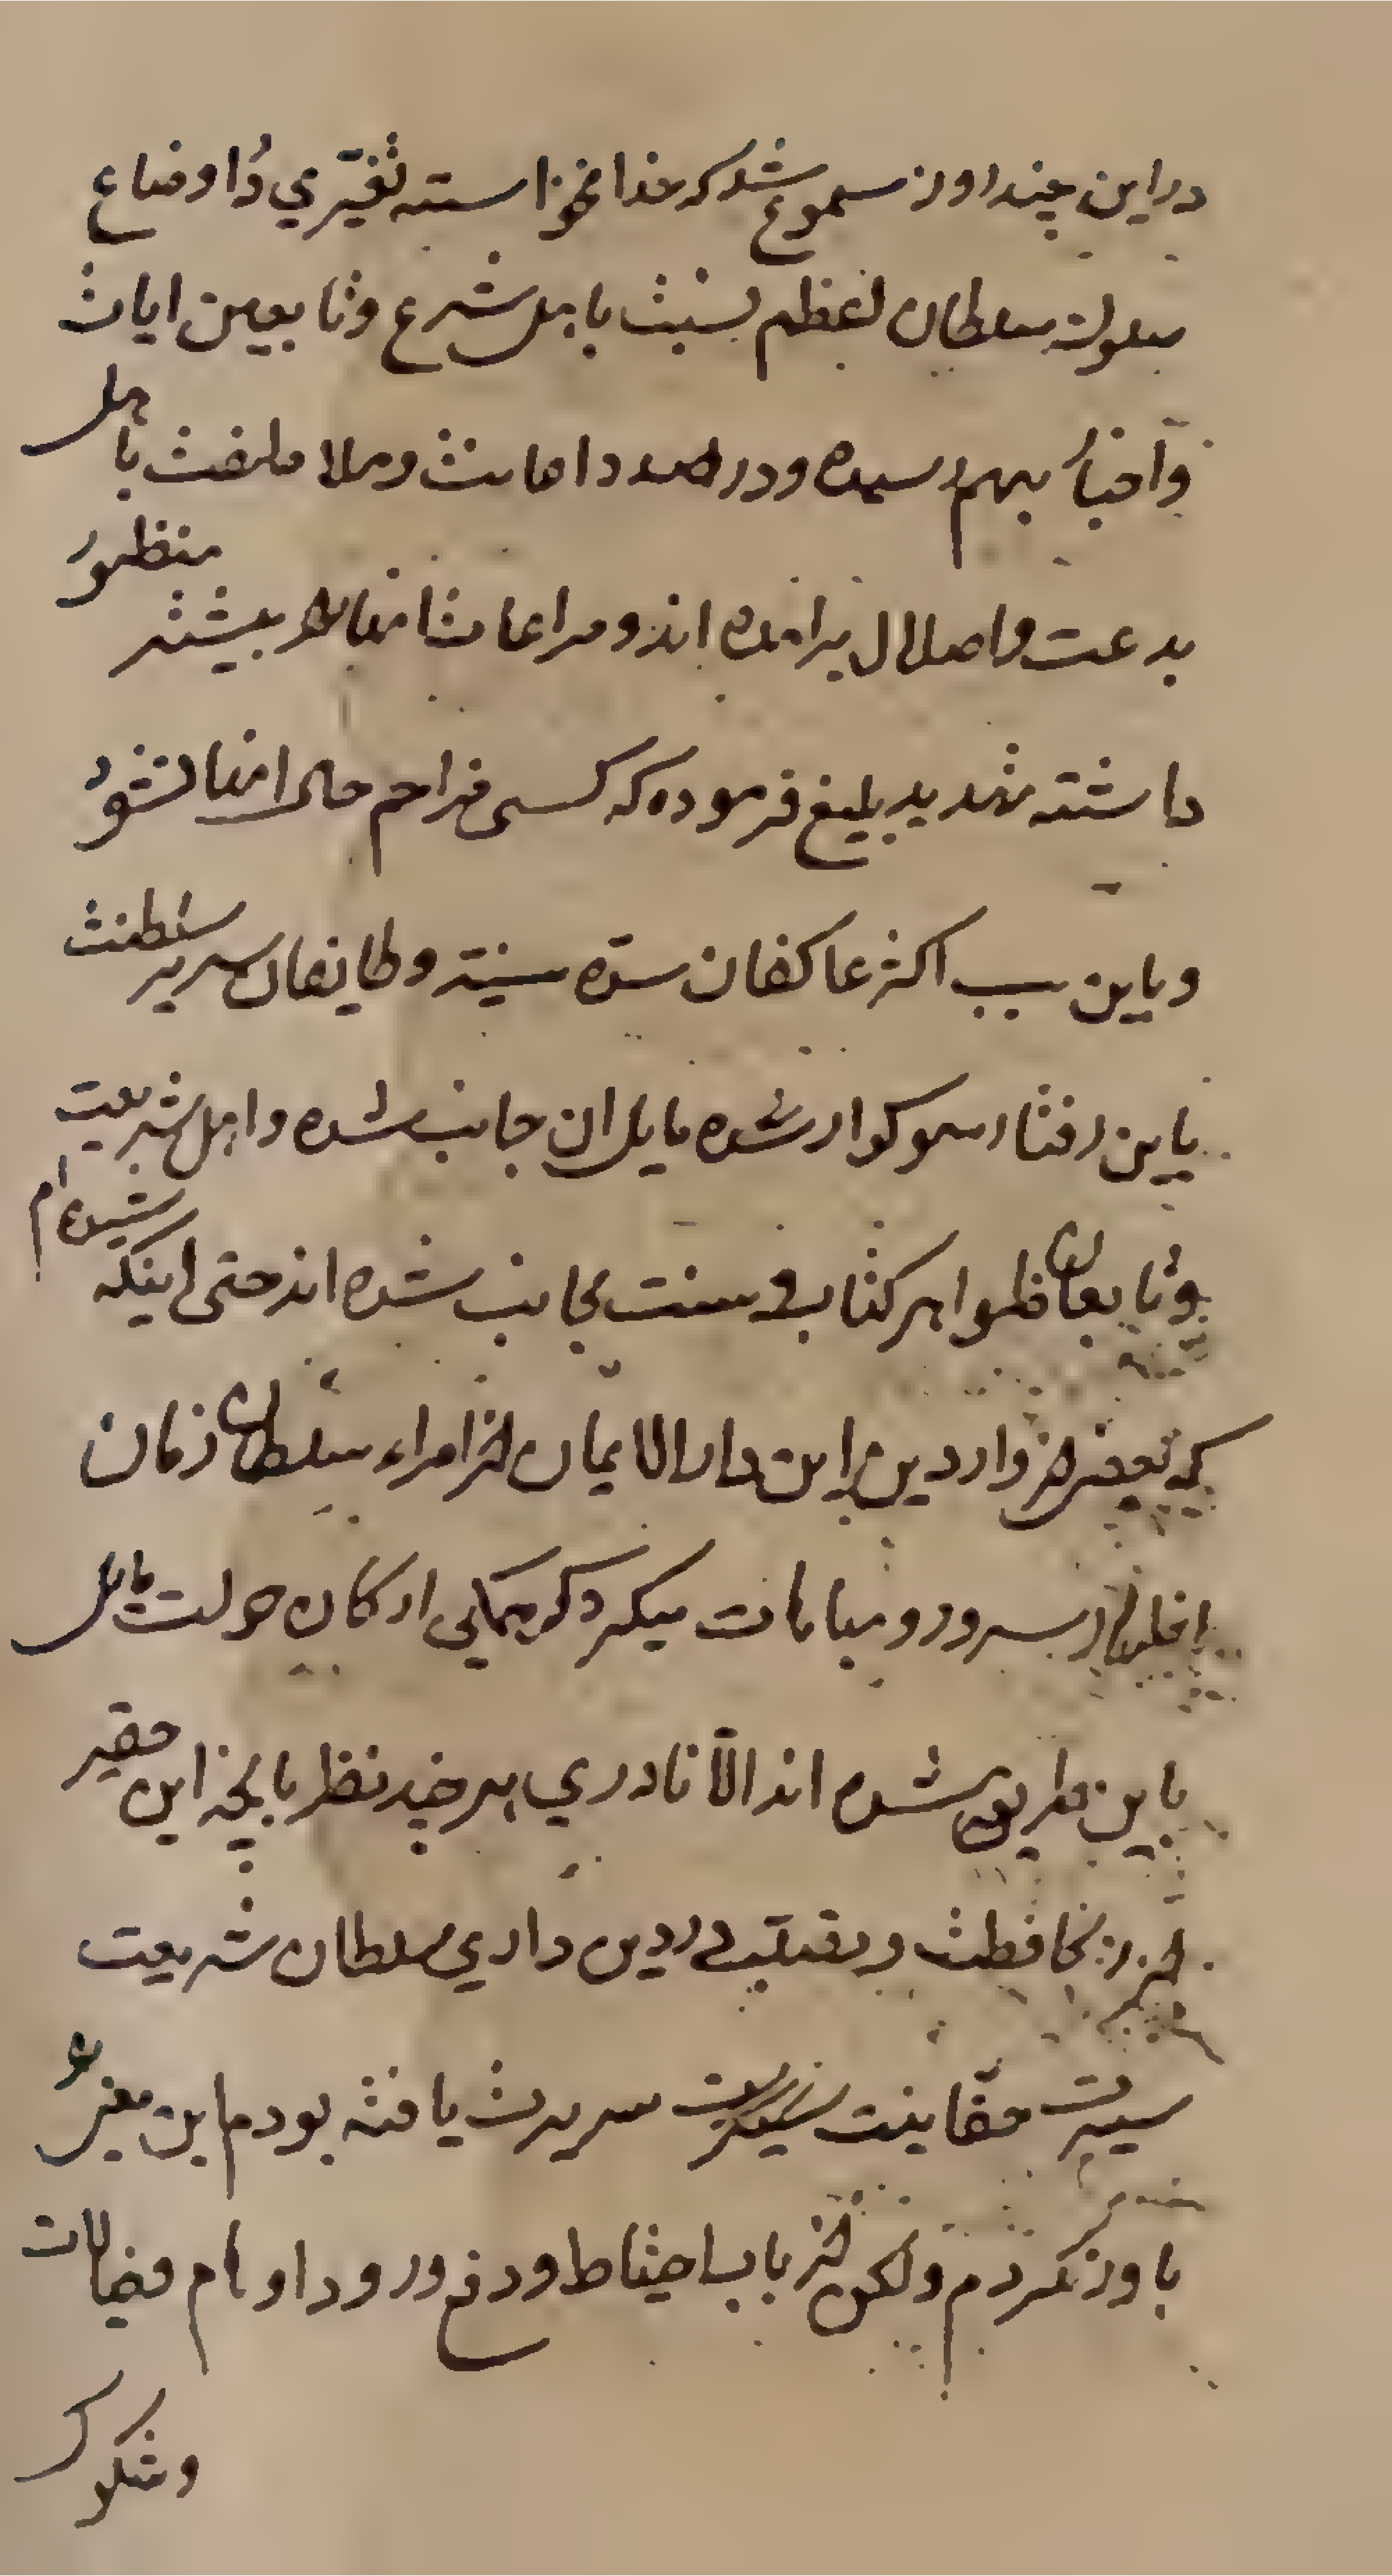 در این چند اوان مسموع شد که خدا نخواسته تغیّری در اوضاع
سلوک سلطان اعظم نسبت باهل شرع و تابعین ایات
و اخبار بهم رسیده و در صدد اعانت و ملا ملفت باهل
بدعت و اضلال برامده اند و مراعات انها بیشتر منظور
داشته تهدید بلیغ فرموده که کسی مزاحم حال انها نشود
و باین سبب اکثر عاکفان سدّه سنیّه و طایفان سریر سلطنت
باین رفتار سوکوار شده مایل ان جانب شده و اهل شریعت
و تابعان ظواهر کتاب و سنت بجانب شده اند حتی اینکه شنیده ام
که بعضی از واردین این دار الایمان از امراء سلطان زمان
اظهار سرور و مباهات میکرد که همگی ارکان دولت مایل
باین طریق شده اند الّا نادری هر چند نظر بانچه این حقیر
از محافظت و تقیّد در دین داری سلطان شریعت
سیرت حقانیت سریرت یافته بودم این معنی را
باور نکردم و لکن از باب احتیاط و دفع ورود اوهام و خیالات
و شکوک